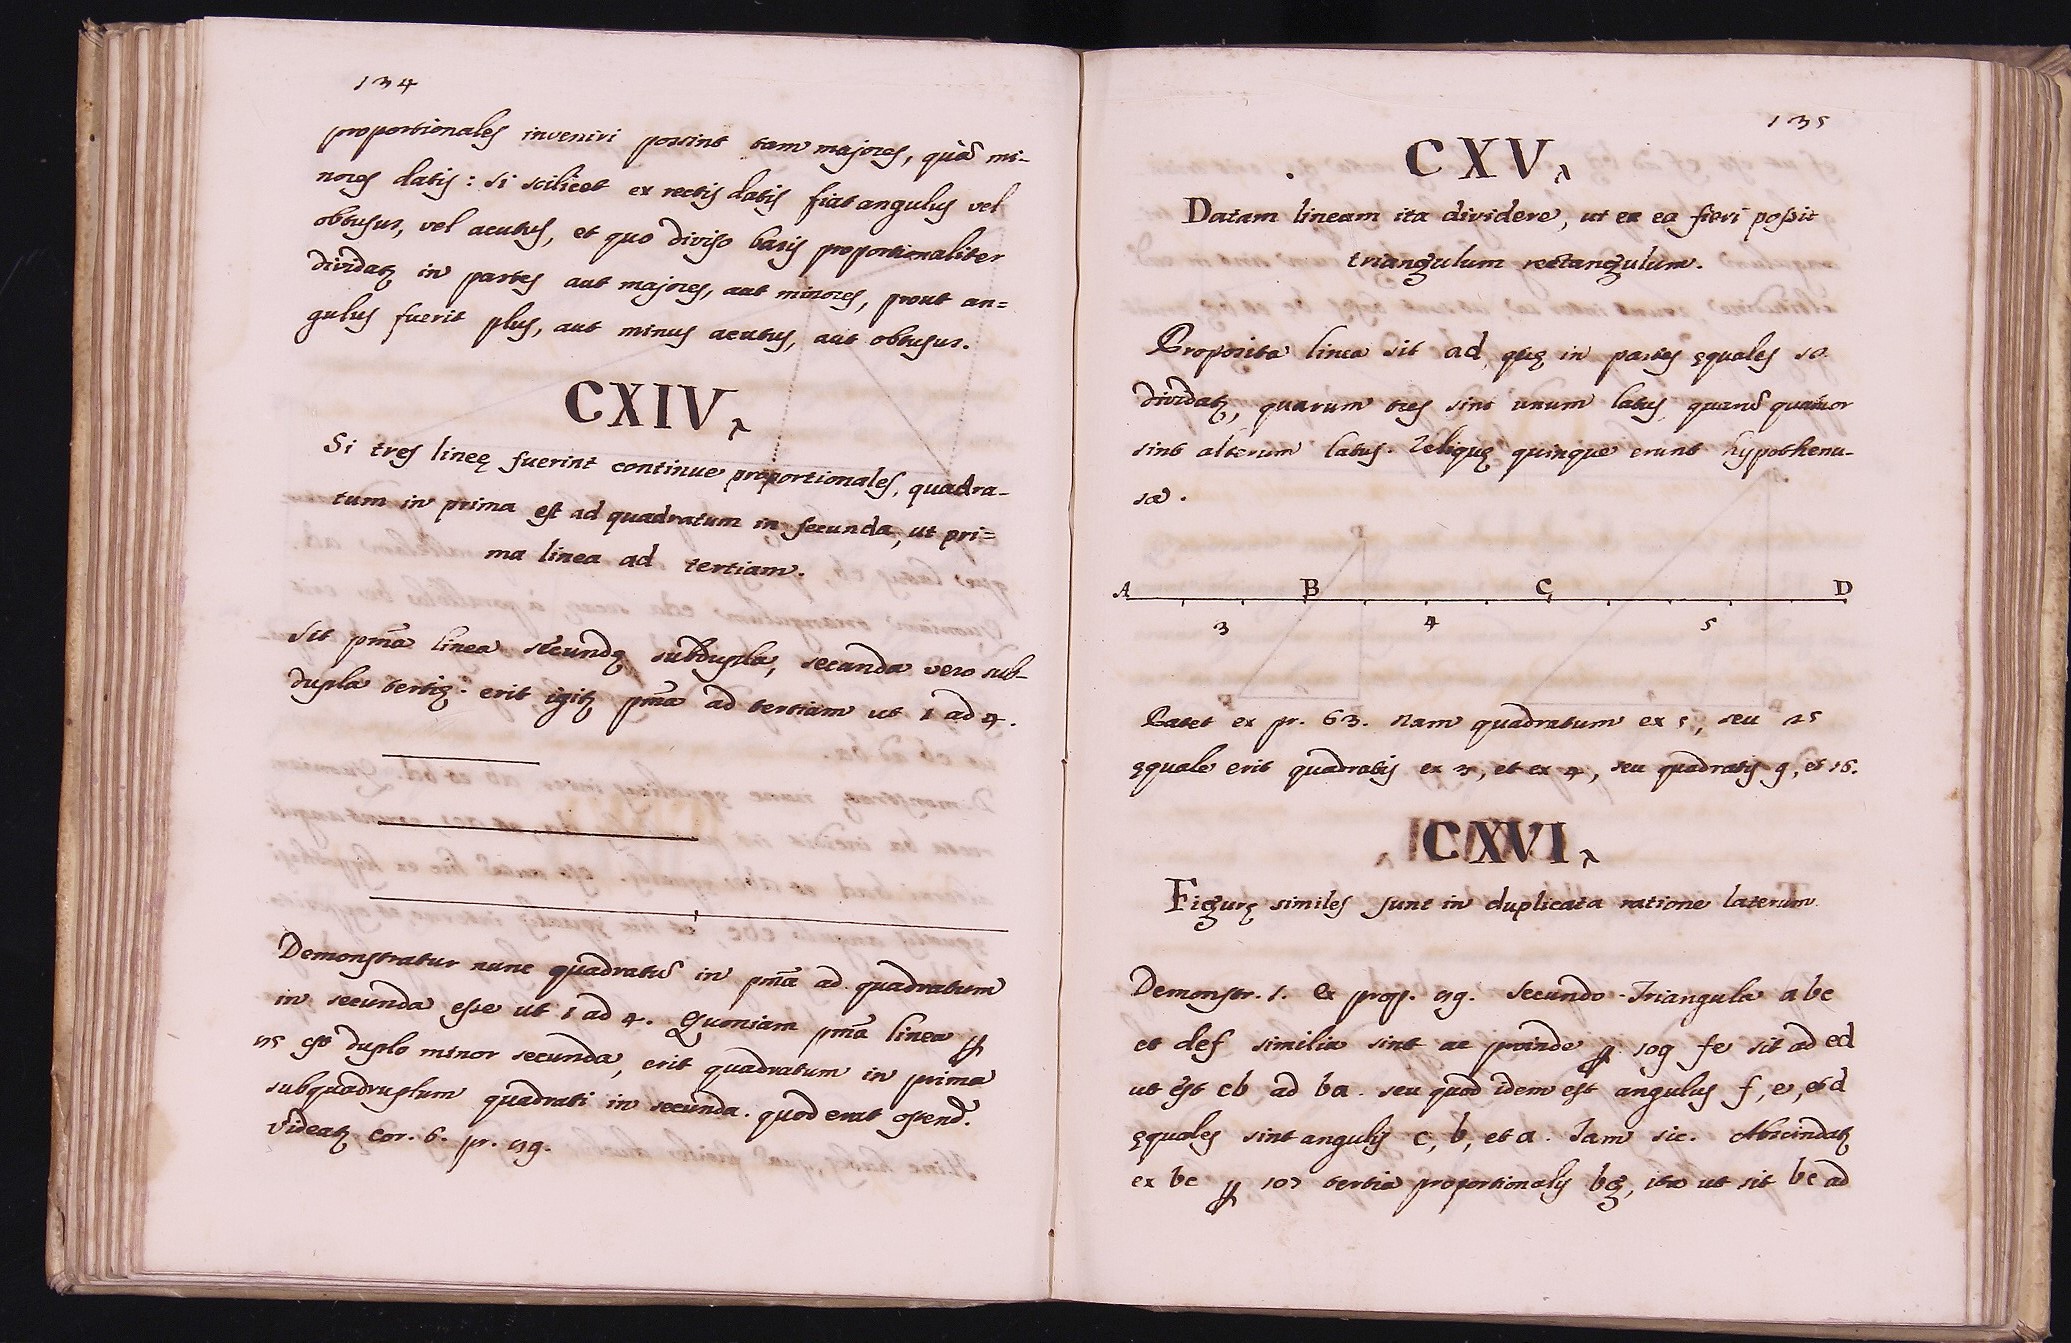 134
proportionales inveniri possint tam majores, quã mi-
nores datis: si scilicet ex rectis datis fiat angulus vel
obtusus, vel acutus, et quo diviso basis proportionaliter
dividatꝫ in partes aut majores, aut minores, prout an=
gulus fuerit plus, aut minus acutus, aut obtusus.
CXIV.
Si tres lineę fuerint continue proportionales, quadra-
tum in prima est ad quadratum in secunda, ut pri=
ma linea ad tertiam.
Sit pm̃a linea secundę subdupla, secunda vero sub-
dupla tertię. erit igitꝫ pm̃a ad tertiam ut 1 ad 4.
Demonstratur nunc quadratũ in pm̃a ad quadratum
in secunda esse ut 1 ad 4. Quoniam pm̃a linea ꝑ
est duplo minor secunda, erit quadratum in prima
subquadruplum quadrati in secunda. quod erat ostend̃.
Videatꝫ cor. 6. pr.
135
CXV.
Datam lineam ita dividere, ut ex ea fieri possit
triangulum rectangulum.
Proposita linea sit ad, quę in partes ęquales 12
dividatꝫ, quarum tres sint unum latus, quarũ quatuor
sint alterum latus. Reliquę quinque erunt hypothenu-
sa.
A B C D
3 4 5
Patet ex pr. 63. nam quadratum ex 5, seu 25
ęquale erit quadratis ex 3, et ex 4, seu quadratis 9, et 16.
CXVI.
Figurę similes sunt in duplicata ratione laterum
Demonstr. 1. Ex prop. Secundo. Triangula abc
et def similia sint ac proinde ꝑ 109 fe sit ad ed
ut est cb ad ba. seu quod idem est angulus f, e, et d
ęquales sint angulis c, b, et a. Jam sic. Abscindatꝫ
ex bc ꝑ 107 tertia proportionalis bg, ita ut sit bc ad